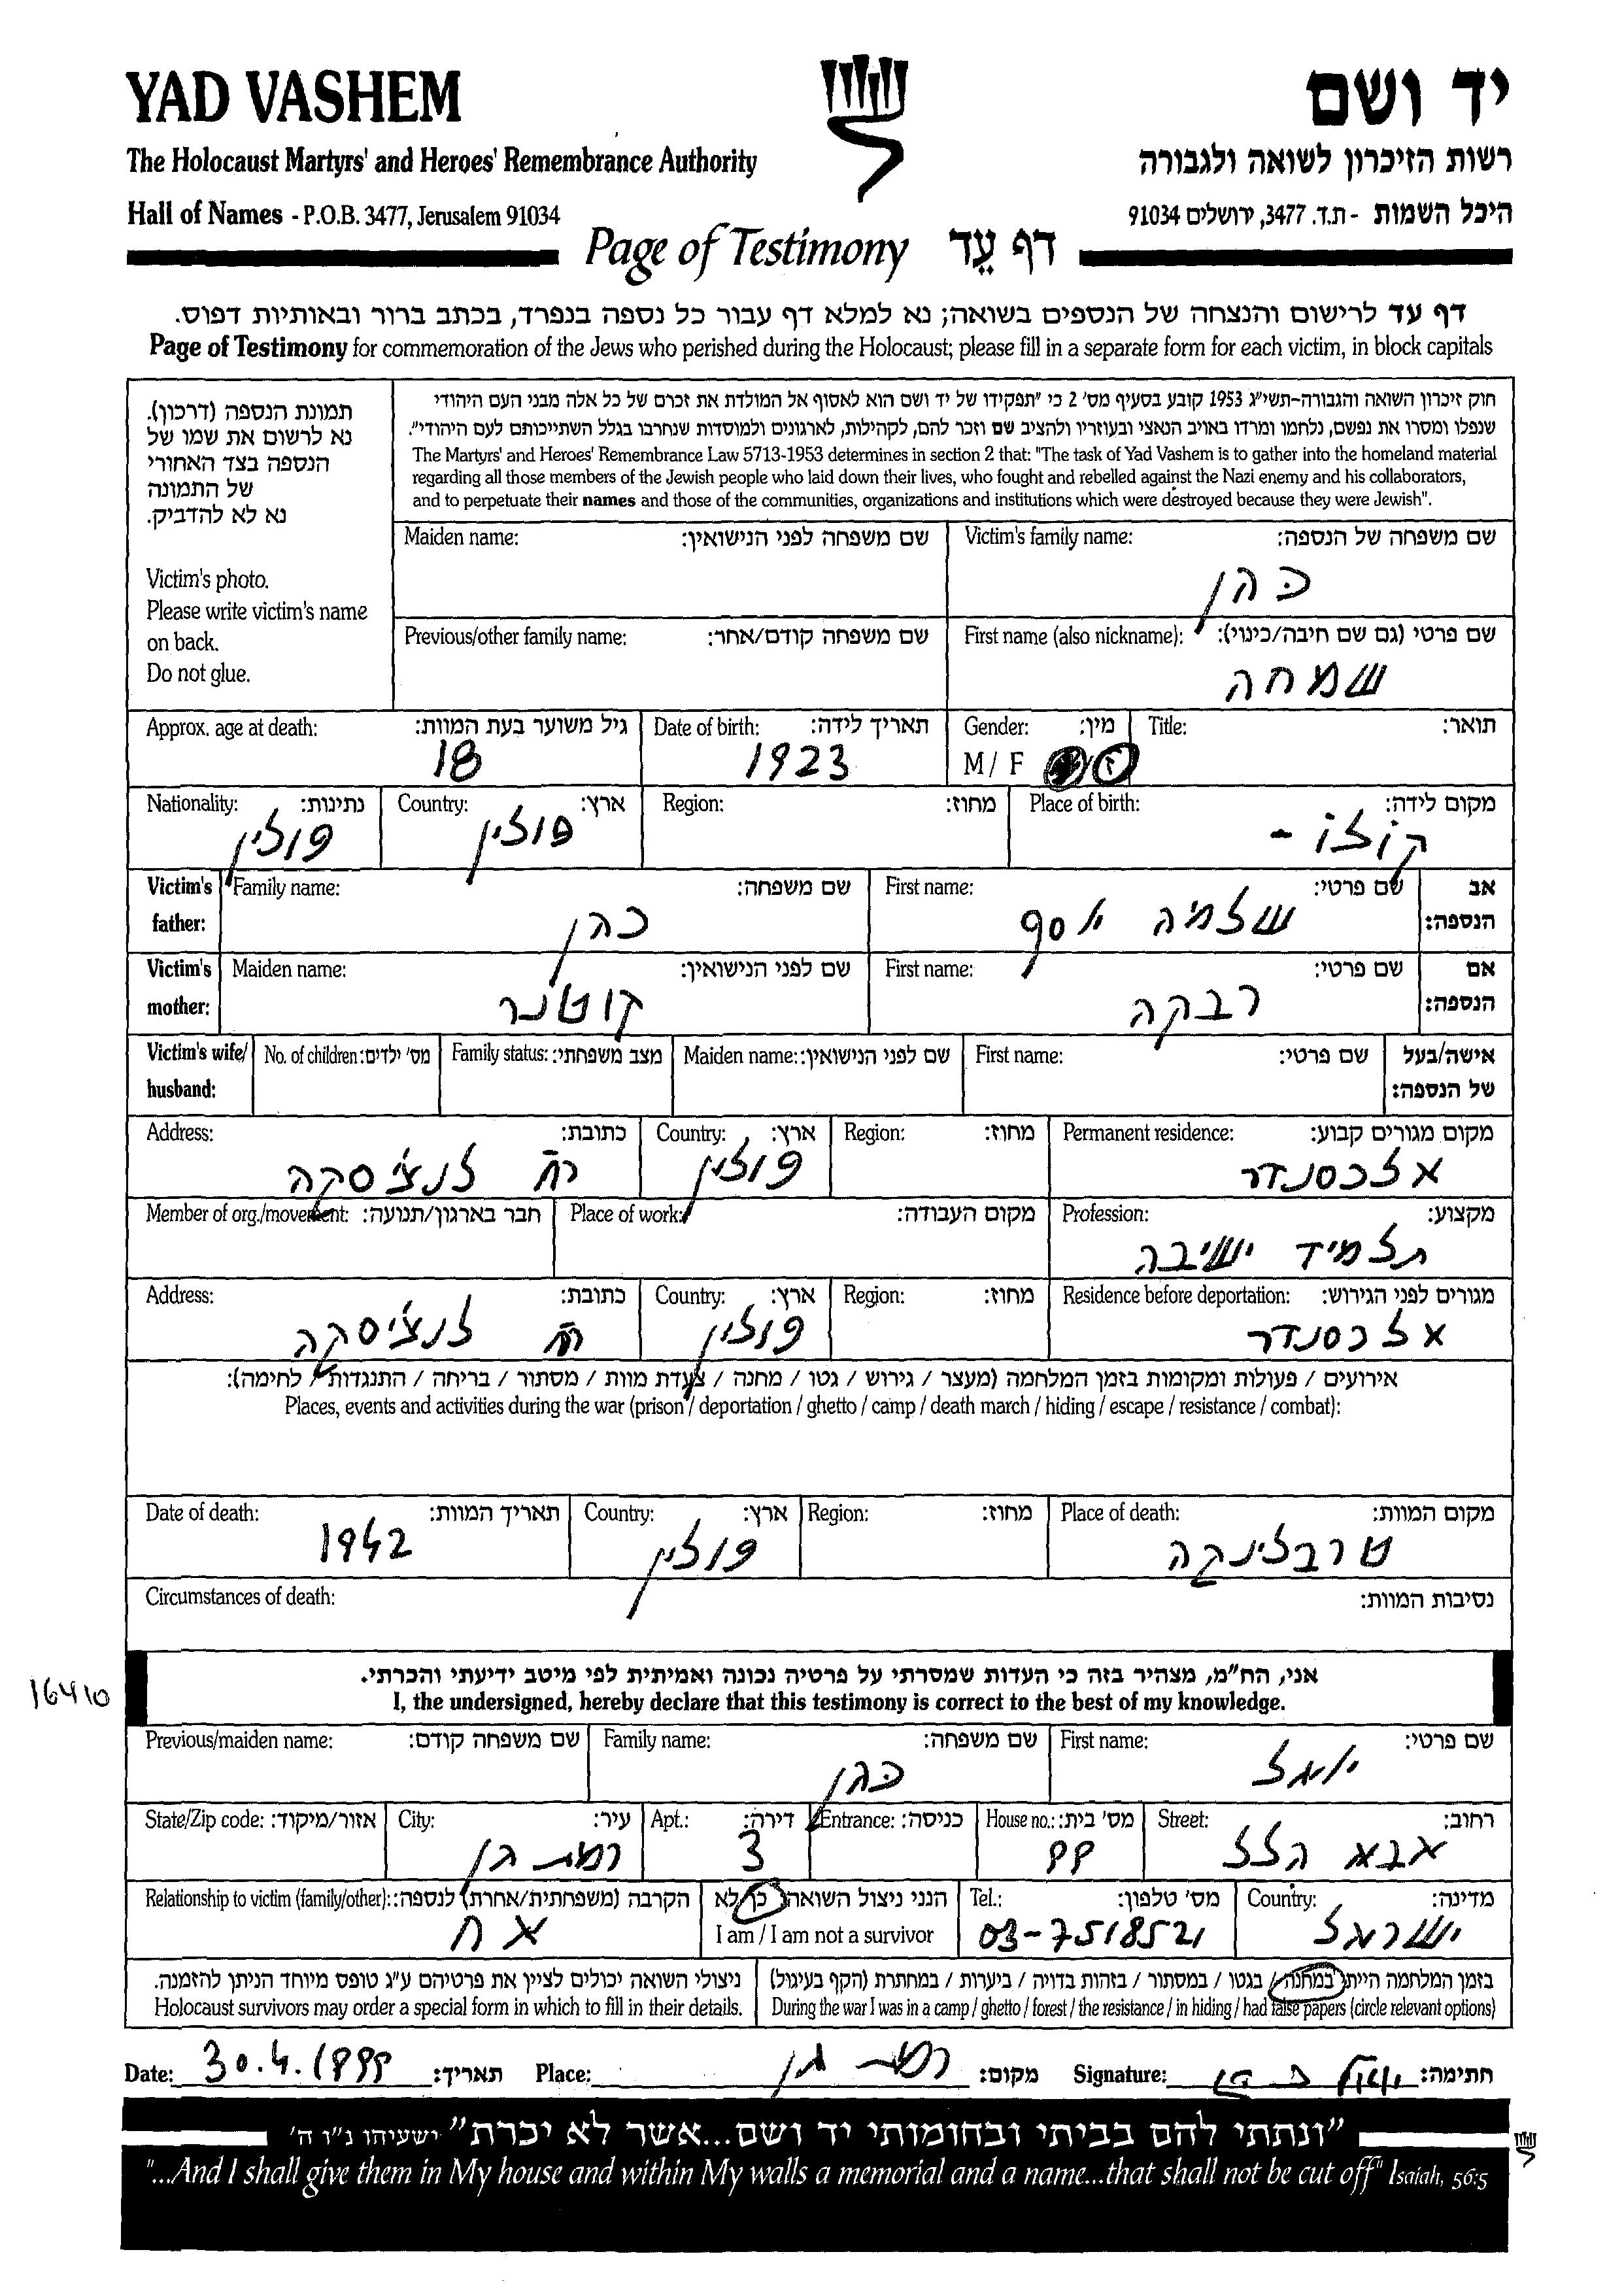 YAD VASHEM
יד ושם
The Holocaust Martyrs' and Heroes' Remembrance Authority
רשות הזיכרון לשואה ולגבורה
Hall of Names - P.O.B. 3477, Jerusalem 91034
היכל השמות - ת.ד. 3477, ירושלים 91034
Page of Testimony דף עֵד
דף עד לרישום והנצחה של הנספים בשואה; נא למלא דף עבור כל נספה בנפרד, בכתב ברור ובאותיות דפוס.
Page of Testimony for commemoration of the Jews who perished during the Holocaust; please fill in a separate form for each victim, in block capitals
תמונת הנספה (דרכון).
נא לרשום את שמו של
הנספה בצד האחורי
של התמונה
נא לא להדביק.
Victim's photo.
Please write victim's name
on back.
Do not glue.
חוק זיכרון השואה והגבורה-תשי"ג 1953 קובע בסעיף מס' 2 כי "תפקידו של יד ושם הוא לאסוף אל המולדת את זכרם של כל אלה מבני העם היהודי
שנפלו ומסרו את נפשם, נלחמו ומרדו באויב הנאצי ובעוזריו ולהציב שם וזכר להם, לקהילות, לארגונים ולמוסדות שנחרבו בגלל השתייכותם לעם היהודי".
The Martyrs' and Heroes' Remembrance Law 5713-1953 determines in section 2 that: "The task of Yad Vashem is to gather into the homeland material
regarding all those members of the Jewish people who laid down their lives, who fought and rebelled against the Nazi enemy and his collaborators,
and to perpetuate their names and those of the communities, organizations and institutions which were destroyed because they were Jewish".
שם משפחה של הנספה: Victim's family name:
כהן
שם משפחה לפני הנישואין: Maiden name:
שם פרטי (גם שם חיבה/כינוי): First name (also nickname):
שמחה
שם משפחה קודם/אחר: Previous/other family name:
תואר: Title:
מין: Gender:
ז M / F
תאריך לידה: Date of birth:
1923
גיל משוער בעת המוות: Approx. age at death:
18
מקום לידה: Place of birth:
קוזלו -
מחוז: Region:
ארץ: Country:
פולין
נתינות: Nationality:
פולין
אב
הנספה:
שם פרטי: First name:
שלמה יוסף
שם משפחה: Family name:
כהן
Victim's
father:
אם
הנספה:
שם פרטי: First name:
רבקה
שם לפני הנישואין: Maiden name:
קוטנר
Victim's
mother:
אישה/בעל
של הנספה:
שם פרטי: First name:
שם לפני הנישואין: Maiden name:
מצב משפחתי: Family status:
מס' ילדים: No. of children:
Victim's wife/
husband:
מקום מגורים קבוע: Permanent residence:
אלכסנדר
מחוז: Region:
ארץ: Country:
פולין
כתובת: Address:
רח לנצ'יסקה
מקצוע: Profession:
תלמיד ישיבה
מקום העבודה: Place of work:
חבר בארגון/תנועה: Member of org./movement:
מגורים לפני הגירוש: Residence before deportation:
אלכסנדר
מחוז: Region:
ארץ: Country:
פולין
כתובת: Address:
רח לנצ'יסקה
אירועים / פעולות ומקומות בזמן המלחמה (מעצר / גירוש / גטו / מחנה / צעדת מוות / מסתור / בריחה / התנגדות / לחימה):
Places, events and activities during the war (prison / deportation / ghetto / camp / death march / hiding / escape / resistance / combat):
מקום המוות: Place of death:
טרבלינקה
מחוז: Region:
ארץ: Country:
פולין
תאריך המוות: Date of death:
1942
נסיבות המוות: Circumstances of death:
16410
אני, הח"מ, מצהיר בזה כי העדות שמסרתי על פרטיה נכונה ואמיתית לפי מיטב ידיעתי והכרתי.
I, the undersigned, hereby declare that this testimony is correct to the best of my knowledge.
שם פרטי: First name:
יואל
שם משפחה: Family name:
כהן
שם משפחה קודם: Previous/maiden name:
רחוב: Street:
אבא הלל
מס' בית: House no.:
99
כניסה: Entrance:
דירה: Apt.:
3
עיר: City:
רמת גן
אזור/מיקוד: State/Zip code:
מדינה: Country:
ישראל
מס' טלפון: Tel.:
03-7518521
הנני ניצול השואה כן/לא
I am / I am not a survivor
הקרבה (משפחתית/אחרת) לנספה: Relationship to victim (family/other):
אח
בזמן המלחמה הייתי במחנה / בגטו / במסתור / בזהות בדויה / ביערות / במחתרת (הקף בעיגול)
During the war I was in a camp / ghetto / forest / the resistance / in hiding / had false papers (circle relevant options)
ניצולי השואה יכולים לציין את פרטיהם ע"ג טופס מיוחד הניתן להזמנה.
Holocaust survivors may order a special form in which to fill in their details.
חתימה: יואל כהן Signature:
מקום: רמת גן Place:
תאריך: 30.4.1999 Date:
"ונתתי להם בביתי ובחומותי יד ושם...אשר לא יכרת" ישעיהו נ"ו ה'
"...And I shall give them in My house and within My walls a memorial and a name...that shall not be cut off" Isaiah, 56:5